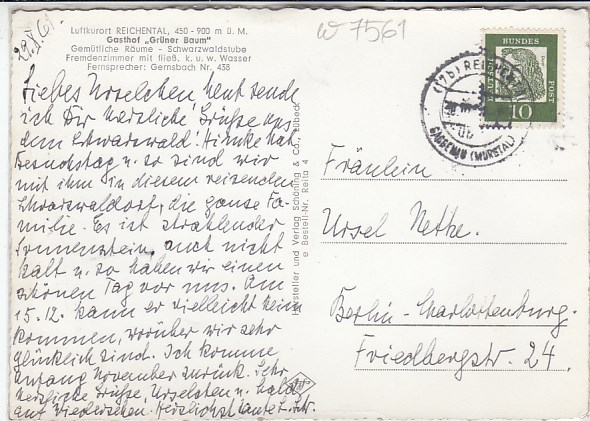 29.X.61
Luftkurort REICHENTAL, 450 - 900 m ü. M.
Gasthof „Grüner Baum"
Gemütliche Räume - Schwarzwaldstube
Fremdenzimmer mit fließ. k. u. w. Wasser
Fernsprecher: Gernsbach Nr. 438
Liebes Urselchen heut sende
ich Dir herzliche Grüße aus
dem Schwarzwald! hat
Besuchstag u. so sind wir
mit ihm in diesem reizenden
Schwarzwalddorf, die ganze Fa-
milie. Es ist strahlender
Sonnenschein, auch nicht
kalt u. so haben wir einen
schönen Tag vor uns. Am
15.12. kann er vielleicht heim
kommen, worüber wir sehr
glücklich sind. Ich komme
Anfang November zurück. Sehr
herzliche Grüße, Urselchen u.
auf Wiedersehen. Herzlichst Tante
Hersteller und Verlag Schöning & Co., Lübeck
Bestell-Nr. Reita 4
w 7561
DEUTSCHE
BUNDES
POST
10
(17b) REICHENTAL
GAGGENAU (MURGTAL)
Fräulein
Ursel Nethe.
Berlin-Charlottenburg.
Friedbergstr. 24.